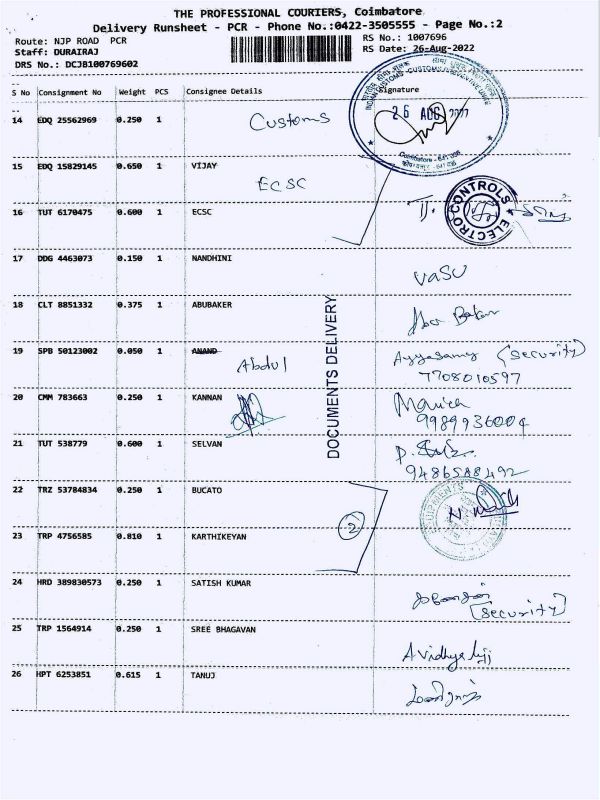 THE PROFESSIONAL COURIERS, Coimbatore
Delivery Runsheet - PCR - Phone No.:0422-3505555 - Page No.:2
Route: NJP ROAD PCR
RS No.: 1007696
Staff: DURAIRAJ
RS Date: 26-Aug-2022
DRS No.: DCJB100769602
S No Consignment No Weight PCS Consignee Details Signature
14 EDQ 25562969 0.250 1 Customs
26 AUG
Coimbatore - 641 018
15 EDQ 15829145 0.650 1 VIJAY
ECSC
16 TUT 6170475 0.600 1 ECSC
ELECTRO CONTROLS
17 DDG 4463073 0.150 1 NANDHINI
vasu
18 CLT 8851332 0.375 1 ABUBAKER
DOCUMENTS DELIVERY
19 SPB 50123002 0.050 1 ANAND Abdul Ayyasamy (security)
7708010597
20 CMM 783663 0.250 1 KANNAN
9989936004
21 TUT 538779 0.600 1 SELVAN
9486588492
22 TRZ 53784834 0.250 1 BUCATO
2
23 TRP 4756585 0.810 1 KARTHIKEYAN
24 HRD 389830573 0.250 1 SATISH KUMAR
(security)
25 TRP 1564914 0.250 1 SREE BHAGAVAN
26 HPT 6253851 0.615 1 TANUJ